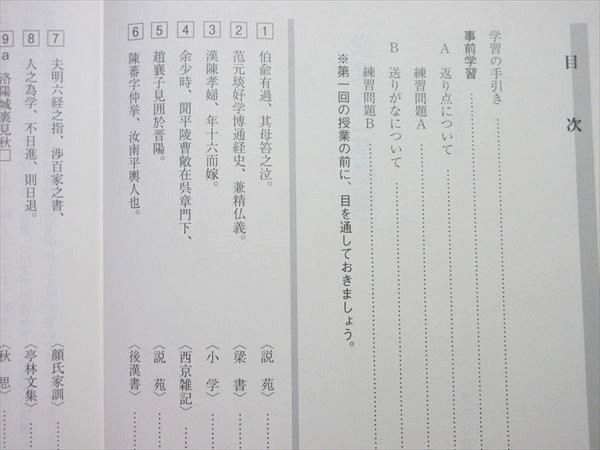 目次
学習の手引き
事前学習
A 返り点について
練習問題A
B 送りがなについて
練習問題B
※第一回の授業の前に、目を通しておきましょう。
1 伯兪有過、其母笞之泣。〈説苑〉
2 范元琰好学博通経史、兼精仏義。〈梁書〉
3 漢陳孝婦、年十六而嫁。〈小学〉
4 余少時、聞平陵曹敞在呉章門下、〈西京雑記〉
5 趙襄子見囲於晋陽。〈説苑〉
6 陳蕃字仲挙、汝南平輿人也。〈後漢書〉
7 夫明六経之指、渉百家之書、〈顔氏家訓〉
8 人之為学、不日進、則日退。〈亭林文集〉
9 a 洛陽城裏見秋□〈秋思〉